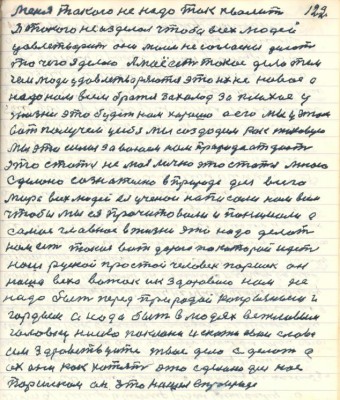 меня такого не надо так хвалить 122
Я такого не изделал чтобы всех людей
удовлетворить они моим не согласны делать
то чего я делаю А у нас есть такое дело тем
чем люди удовлетворяются это их не новое а
надо нам всем братья за холод за плохое у
жизни это будет нам хорошо а его мы у этом
вот получем себя мы создадим как таковую
мы эти силы завоюем нам природа отдасть
это статя не моя лично это статя много
сделано сознательно в природе для всего
мира всех людей ее ученое написали нам всем
чтобы мы ея прочитовали и понимали а
самое главное в жизни это надо делать
нам есть такая вот дорога по которой идеть
наш руской простой человек паршек он
наше всех вот как их здоровию нам не
надо быть перед природой капризными и
гордым а надо быть в людях вежливым
головку низко поклони и скажи свои слова
им здравствуйте твое дело сделать а
ох они как хотять это сделано для нас
Паршеком он это нашел в природе